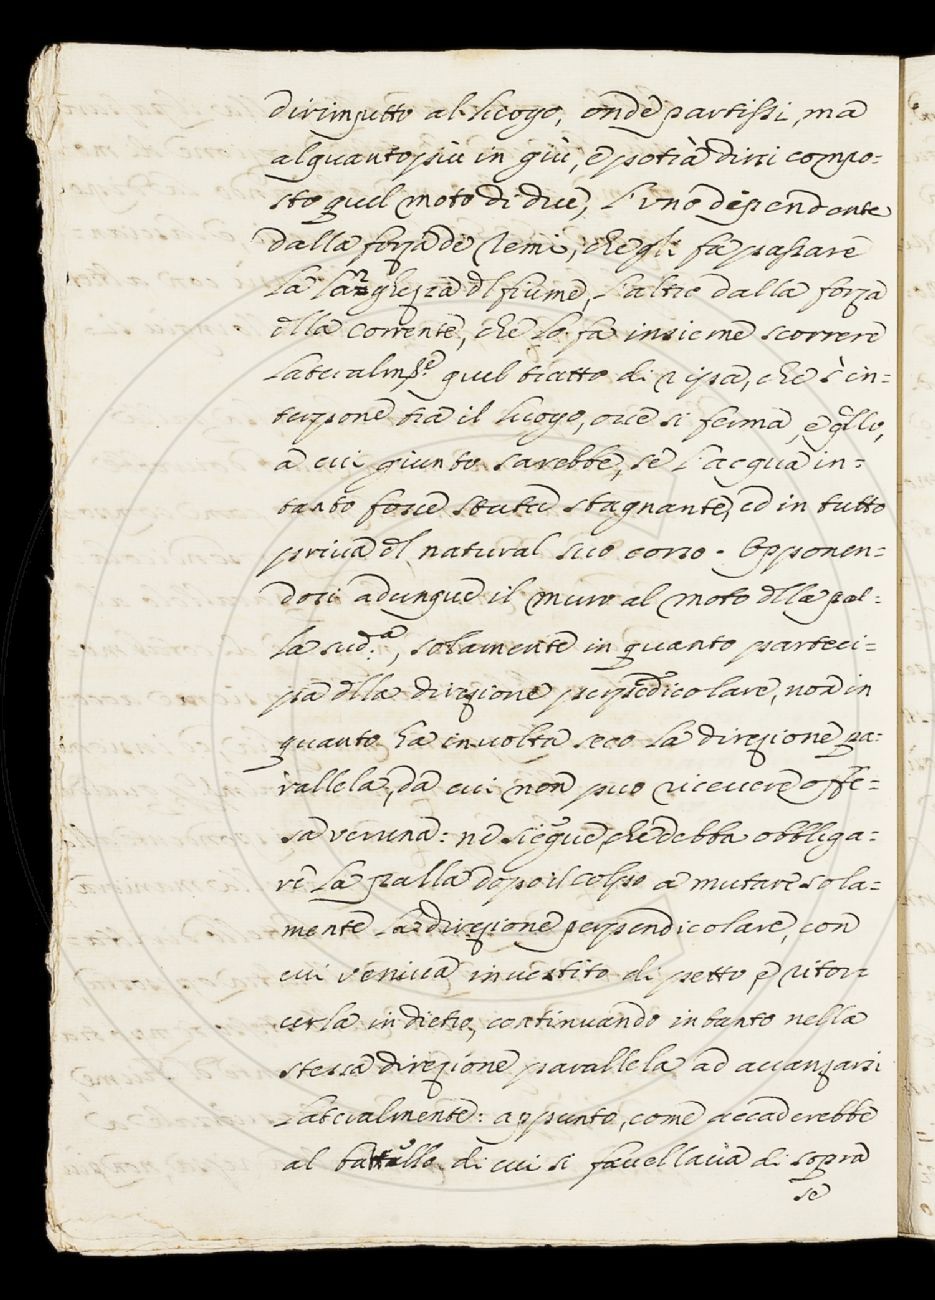 dirimpetto al luogo, onde partissi, ma
alquanto più in giù, e potrà dirsi compo=
sto quel moto di due, l'uno dependente
dalla forza de remi, che gli fa passare
la larghezza dl fiume, l'altro dalla forza
dlla corrente, che lo fa insieme scorrere
lateralmte. quel tratto di ripa, che s'in=
terpone tra il luogo, oue si ferma, e qllo,
a cui giunto sarebbe, se l'acqua in=
tanto fosse stata stagnante, ed in tutto
priua dl natural suo corso. Opponen=
dosi adunque il muro al moto dlla pal=
la sud.a, solamente in quanto parteci=
pa dlla direzione perpedicolare, non in
quanto ha inuolta seco la direzione pa=
rallela, da cui non puo riceuere offe=
sa veruna: ne siegue, che debba obbliga=
re la palla dopo il colpo a mutare sola=
mente la direzione perpendicolare, con
cui veniua inuestito di petto, e ritor=
cerla indietro, continuando intanto nella
stessa direzione parallela ad auanzarsi
lateralmente: appunto, come accaderebbe
al battello di cui si fauellaua di sopra
se